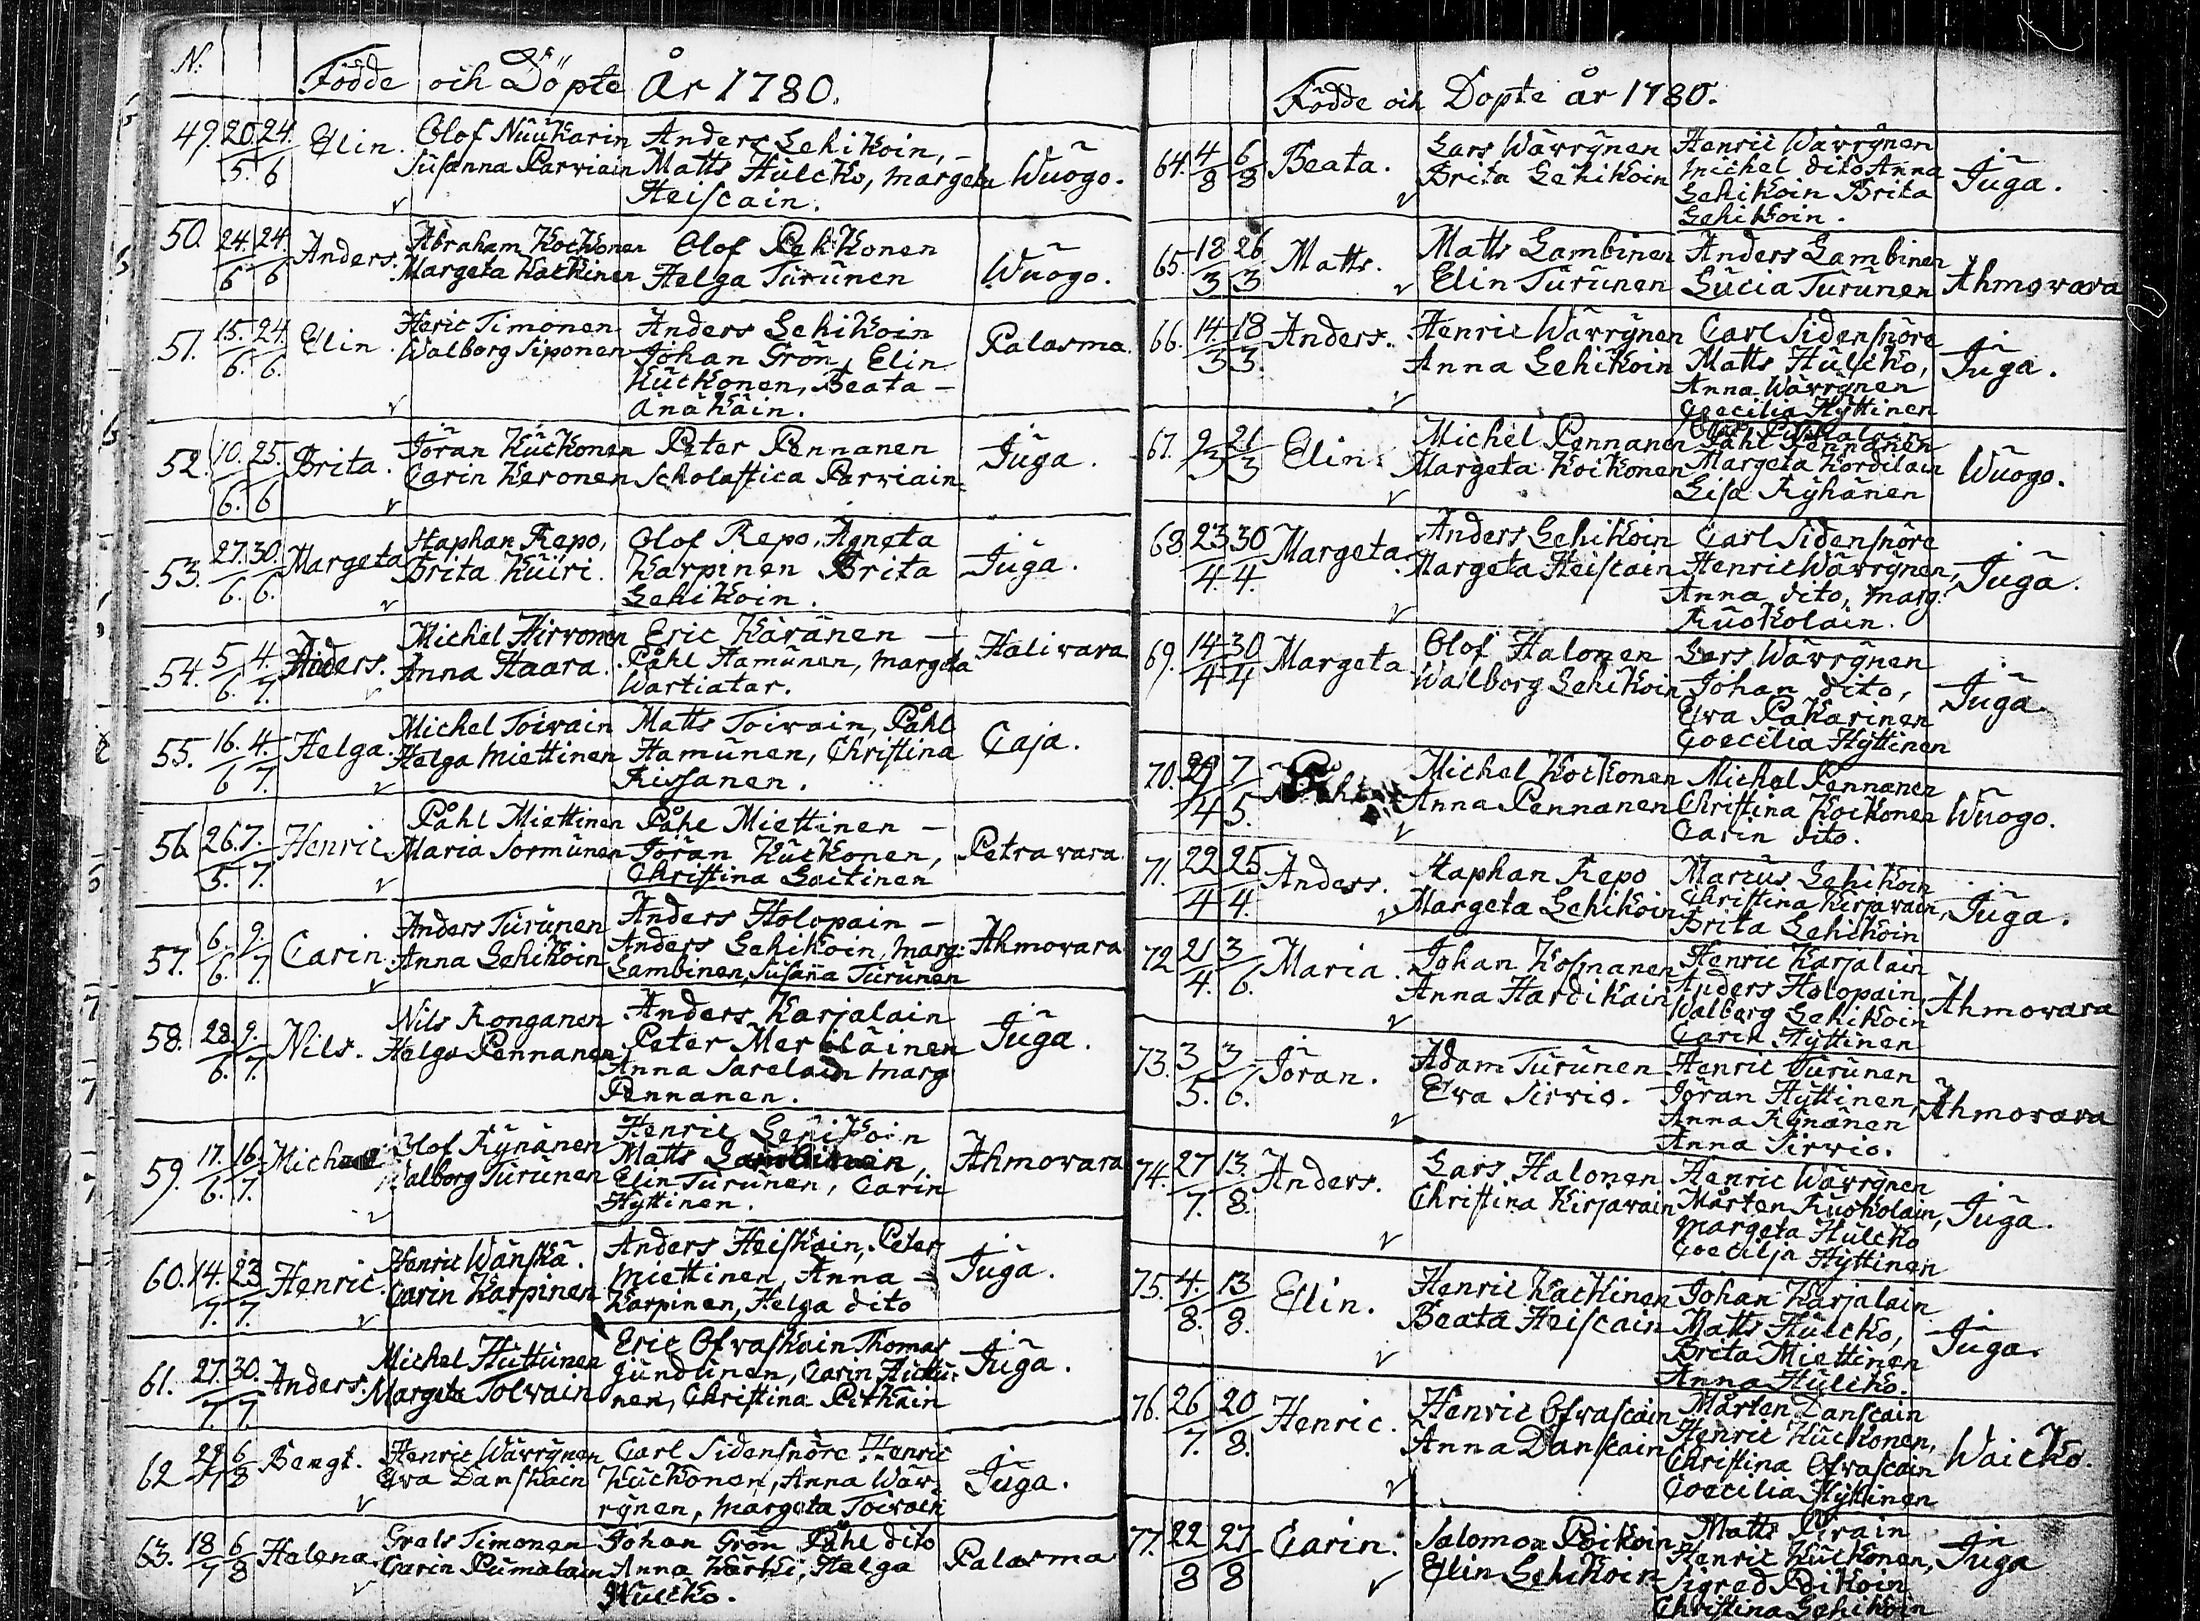 N:
Födde och Döpte År 1780.
49. 20/5. 24./6 Elin. Olof Nuukarin Anders Lehikoin, –
Susanna Parviain Matts Hulcko, Margeta Wuogo.
Heiscain.
50. 24./6 24./6 Anders. Abraham Kockonen Olof Pekkonen
Margeta Kackinen Helga Turunen Wuogo.
51. 15./6. 24./6. Elin. Heric Timonen Anders Lehikoin
Walborg Siponen Johan Grön, Elin Palasma.
Kuckonen, Beata –
Änäkäin.
52. 10./6. 25./6 Brita. Jöran Kuckonen Peter Pennanen
Carin Keronen Scholastica Parviain Juga.
53. 27./6. 30./6. Margeta Staphan Repo, Olof Repo, Agneta
Brita Kuiri. Karpinen Brita Juga.
Lehikoin.
54. 5/6. 4./7. Anders. Michel Hirvonen Eric Käränen –
Anna Haara. Påhl Hamunen, Margeta Halivara
Wartiatar.
55. 16./6 4./7. Helga. Michel Toivain Matts Toivain, Påhl
Helga Miettinen Hamunen, Christina Caja.
Rissanen.
56. 26./5. 7./7. Henric Påhl Miettinen Påhl Miettinen –
Maria Sormunen Jöran Kuckonen, Petravara
Christina Goitinen
57. 6./6. 9./7. Carin. Anders Turunen Anders Holopain –
Anna Lehikoin Anders Lehikoin, Marg: Ahmovara
Lambinen, Susana Turunen
58. 28./6. 9./7. Nils. Nils Ronganen Anders Karjalain
Helga Pennanen Peter Meriläinen Juga.
Anna Sarelain Marg
Pennanen.
59. 17./6. 16./7. Michel Olof Rynänen Henric Lehikoin
Walborg Turunen Matts Lambinen, Ahmovara
Elin Turunen, Carin
Hyttinen.
60. 14./7. 23/7. Henric. Henric Wänskä. Anders Heiskain, Peter
Carin Karpinen Miettinen, Anna – Juga.
Karpinen, Helga dito
61. 27./7. 30./7. Anders. Michel Huttunen Eric Ofvaskain Thomas
Margeta Toivain Jundunen, Carin Huttu- Juga.
nen, Christina Pitkäin
62 29/7 6/8 Bengt. Henric Wärrynen Carl Sidensnöre Henric
Eva Danskain Kuckonen, Anna Wär- Juga.
rynen, Margeta Toivain
63. 18/7 6/8 Helena. Grels Timonen Johan Grön Påhl dito
Carin Pumalain Anna Kärki, Helga Palasma
Hulcko.
Födde och Döpte år 1780.
64. 4/8 6/8 Beata. Lars Wärrynen Henric Wärrynen
Brita Lehikoin Michel dito Anna Juga.
Lehikoin Brita
Lehikoin.
65. 18/3 26/3 Matts. Matts Lambinen Anders Lambinen
Elin Turunen Lucia Turunen Ahmovara
66. 14./3 18/3. Anders. Henric Wärrynen Carl Sidensnöre
Anna Lehikoin Matts Hulcko, Juga.
Anna Wärrynen
Coecilia Hyttinen
67. 9/3 21/3 Elin. Michel Pennanen Påhl Pennanen
Margeta Kockonen Margeta Kordilain Wuogo.
Lisa Ryhänen
68. 23/4. 30/4. Margeta. Anders Lehikoin Carl Sidensnöre
Margeta Heiscain Henric Wärrynen, Juga.
Anna dito, Marg:
Ruokolain.
69. 14/4 30/4 Margeta Olof Halonen Lars Wärrynen
Walborg Lehikoin Johan dito, Juga.
Eva Pakarinen
Coecilia Hyttinen
70. 29/4 7/5. Michel Kockonen Michel Pennanen
Anna Pennanen Christina Kockonen Wuogo.
Carin dito.
71. 22/4 25/4. Anders. Staphan Repo Marcus Lehikoin
Margeta Lehikoin Christina Kirjavain, Juga.
Brita Lehikoin
72 21/4. 3/6. Maria. Johan Kosmanen Henric Karjalain
Anna Hardikain Anders Holopain, Ahmovara
Walborg Lehikoin
Carin Hyttinen
73. 3/5. 3/6. Jöran. Adam Turunen Henric Turunen
Eva Sirvio. Jöran Hyttinen, Ahmovara
Anna Rynänen
Anna Sirvio.
74. 27/7. 13./8. Anders. Lars Halonen Henric Wärrynen
Christina Kirjavain Mårten Ruokolain, Juga.
Margeta Hulcko
Coecilja Hyttinen
75. 4./8. 13/8. Elin. Henric Kackinen Johan Karjalain
Beata Heiscain Matts Hulcko, Juga.
Brita Miettinen
Anna Hulcko.
76. 26/7. 20/8. Henric. Henric Ofvascain Mårten Danscain
Anna Danscain Henric Kuckonen, Waicko.
Christina Ofvascain
Coecilia Hyttinen
77. 22/8 27/8 Carin. Salomon Poikoin Matts Pirain
Elin Lehikoin Henric Kuckonen, Juga
Sigred Poikoin
Christina Lehikoin